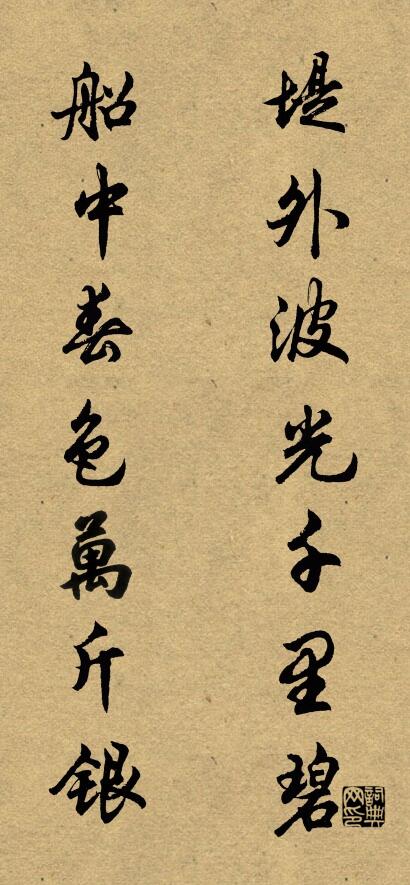 堤外波光千里碧
船中春色萬斤銀
詞典网印